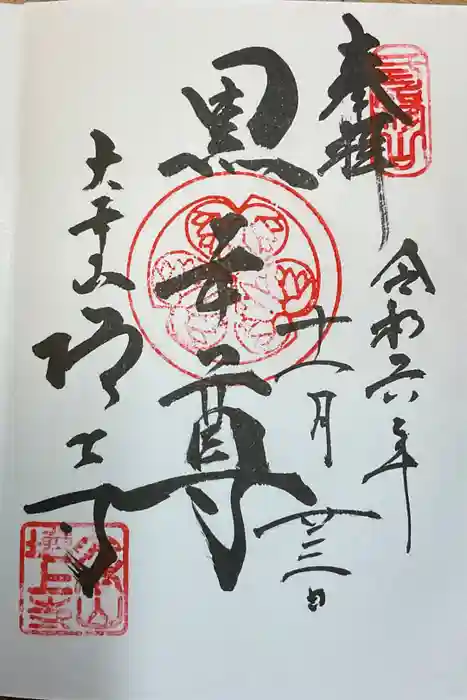 奉拝
令和六年
十一月
廿三日
黒本尊
大本山
増上寺
三縁山
増上寺